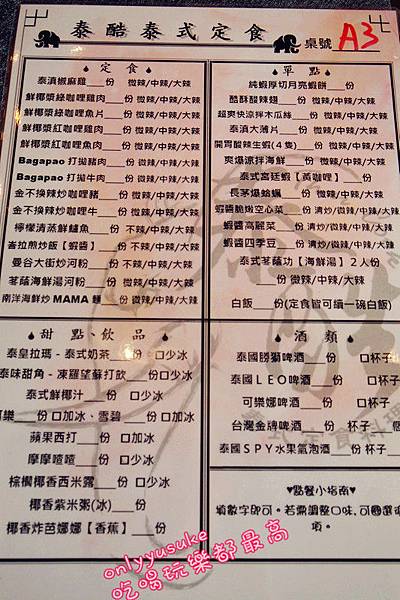 泰酷泰式定食
桌號 A3
定食
泰滇椒麻雞__份 微辣/中辣/大辣
鮮椰漿綠咖哩雞肉__份 微辣/中辣/大辣
鮮椰漿綠咖哩魚片__份 微辣/中辣/大辣
鮮椰漿紅咖哩雞肉__份 微辣/中辣/大辣
鮮椰漿紅咖哩魚片__份 微辣/中辣/大辣
Bagapao 打拋豬肉__份 微辣/中辣/大辣
Bagapao 打拋牛肉__份 微辣/中辣/大辣
金不換辣炒咖哩豬__份 微辣/中辣/大辣
金不換辣炒咖哩牛__份 微辣/中辣/大辣
檸檬清蒸鮮鱸魚__份 不辣/中辣/大辣
峇拉煎炒飯【蝦醬】__份 不辣/中辣/大辣
曼谷大街炒河粉__份 不辣/中辣/大辣
茗蔭海鮮湯河粉__份 微辣/中辣/大辣
南洋海鮮炒 MAMA 麵__份 微辣/中辣/大辣
單點
純蝦厚切月亮蝦餅__份
酷酥酸辣翅__份 微辣/中辣/大辣
超爽快涼拌木瓜絲__份 微辣/中辣/大辣
泰滇大薄片__份 微辣/中辣/大辣
開胃酸辣生蝦(4隻)__份 微辣/中辣/大辣
爽爆涼拌海鮮__份 微辣/中辣/大辣
泰式宮廷蝦【黃咖哩】__份
長茅爆蛤蠣__份 微辣/中辣/大辣
蝦醬脆嫩空心菜__份 清炒/微辣/中辣/大辣
蝦醬高麗菜__份 清炒/微辣/中辣/大辣
蝦醬四季豆__份 清炒/微辣/中辣/大辣
泰式茗蔭功【海鮮湯】2人份
__份 微辣/中辣/大辣
白飯__份(定食皆可續一碗白飯)
甜點、飲品
泰皇拉瑪-泰式奶茶__份口少冰
泰味甜角-凍羅望蘇打飲__份口少冰
泰式鮮椰汁__份 口少冰
可樂__份 口加冰、雪碧__份 口加冰
蘋果西打__份 口加冰
摩摩喳喳__份 口少冰
棕櫚椰香西米露__份 口少冰
椰香紫米粥(冰)__份
椰香炸芭娜娜【香蕉】__份
酒類
泰國勝獅啤酒__份 口杯子
泰國LEO啤酒__份 口杯子
可樂娜啤酒__份 口杯子
台灣金牌啤酒__份 口杯子 個
泰國SPY水果氣泡酒__份 口杯子
♥點餐小指南♥
填數字即可。若需調整口味,可圈選項
項。
onlyyusuke
吃喝玩樂都最高